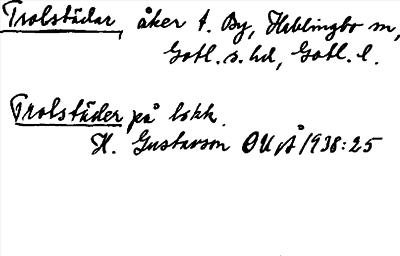 Trolstädar, åker t. By, Hablingbo sn,
Gotl. s. hd, Gotl. l.
Trolstäder på lokk.
H. Gustavson OUÅ 1938:25